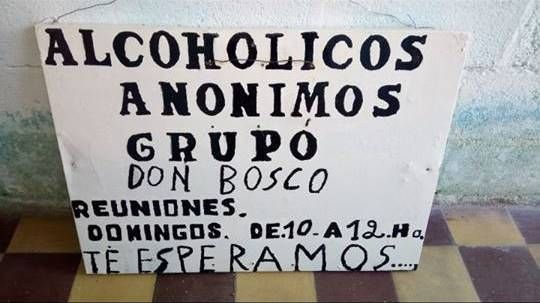 ALCOHOLICOS
ANONIMOS
GRUPO
DON BOSCO
REUNIONES.
DOMINGOS. DE 10. A 12. Ho.
TE ESPERAMOS.....